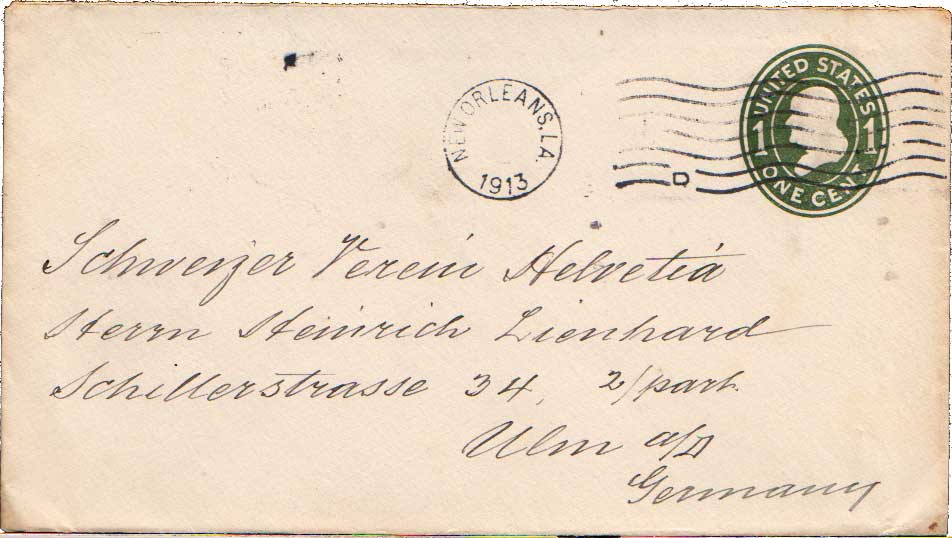 NEW ORLEANS, LA.
1913
UNITED STATES
1 1
ONE CENT
D
Schweizer Verein Helvetia
Herrn Heinrich Lienhard
Schillerstrasse 34, 2/part.
Ulm a/D
Germany